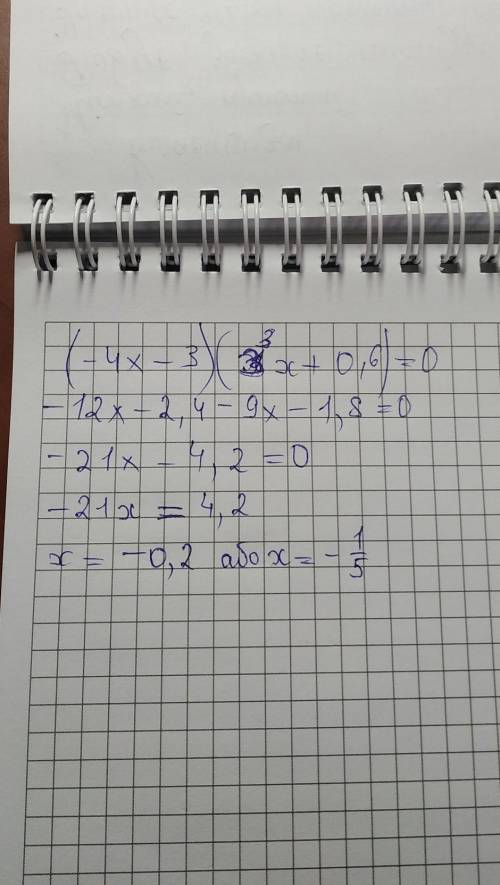 (-4x-3)(3x+0,6)=0
-12x-2,4-9x-1,8=0
-21x-4,2=0
-21x=4,2
x=-0,2 або x=-1/5